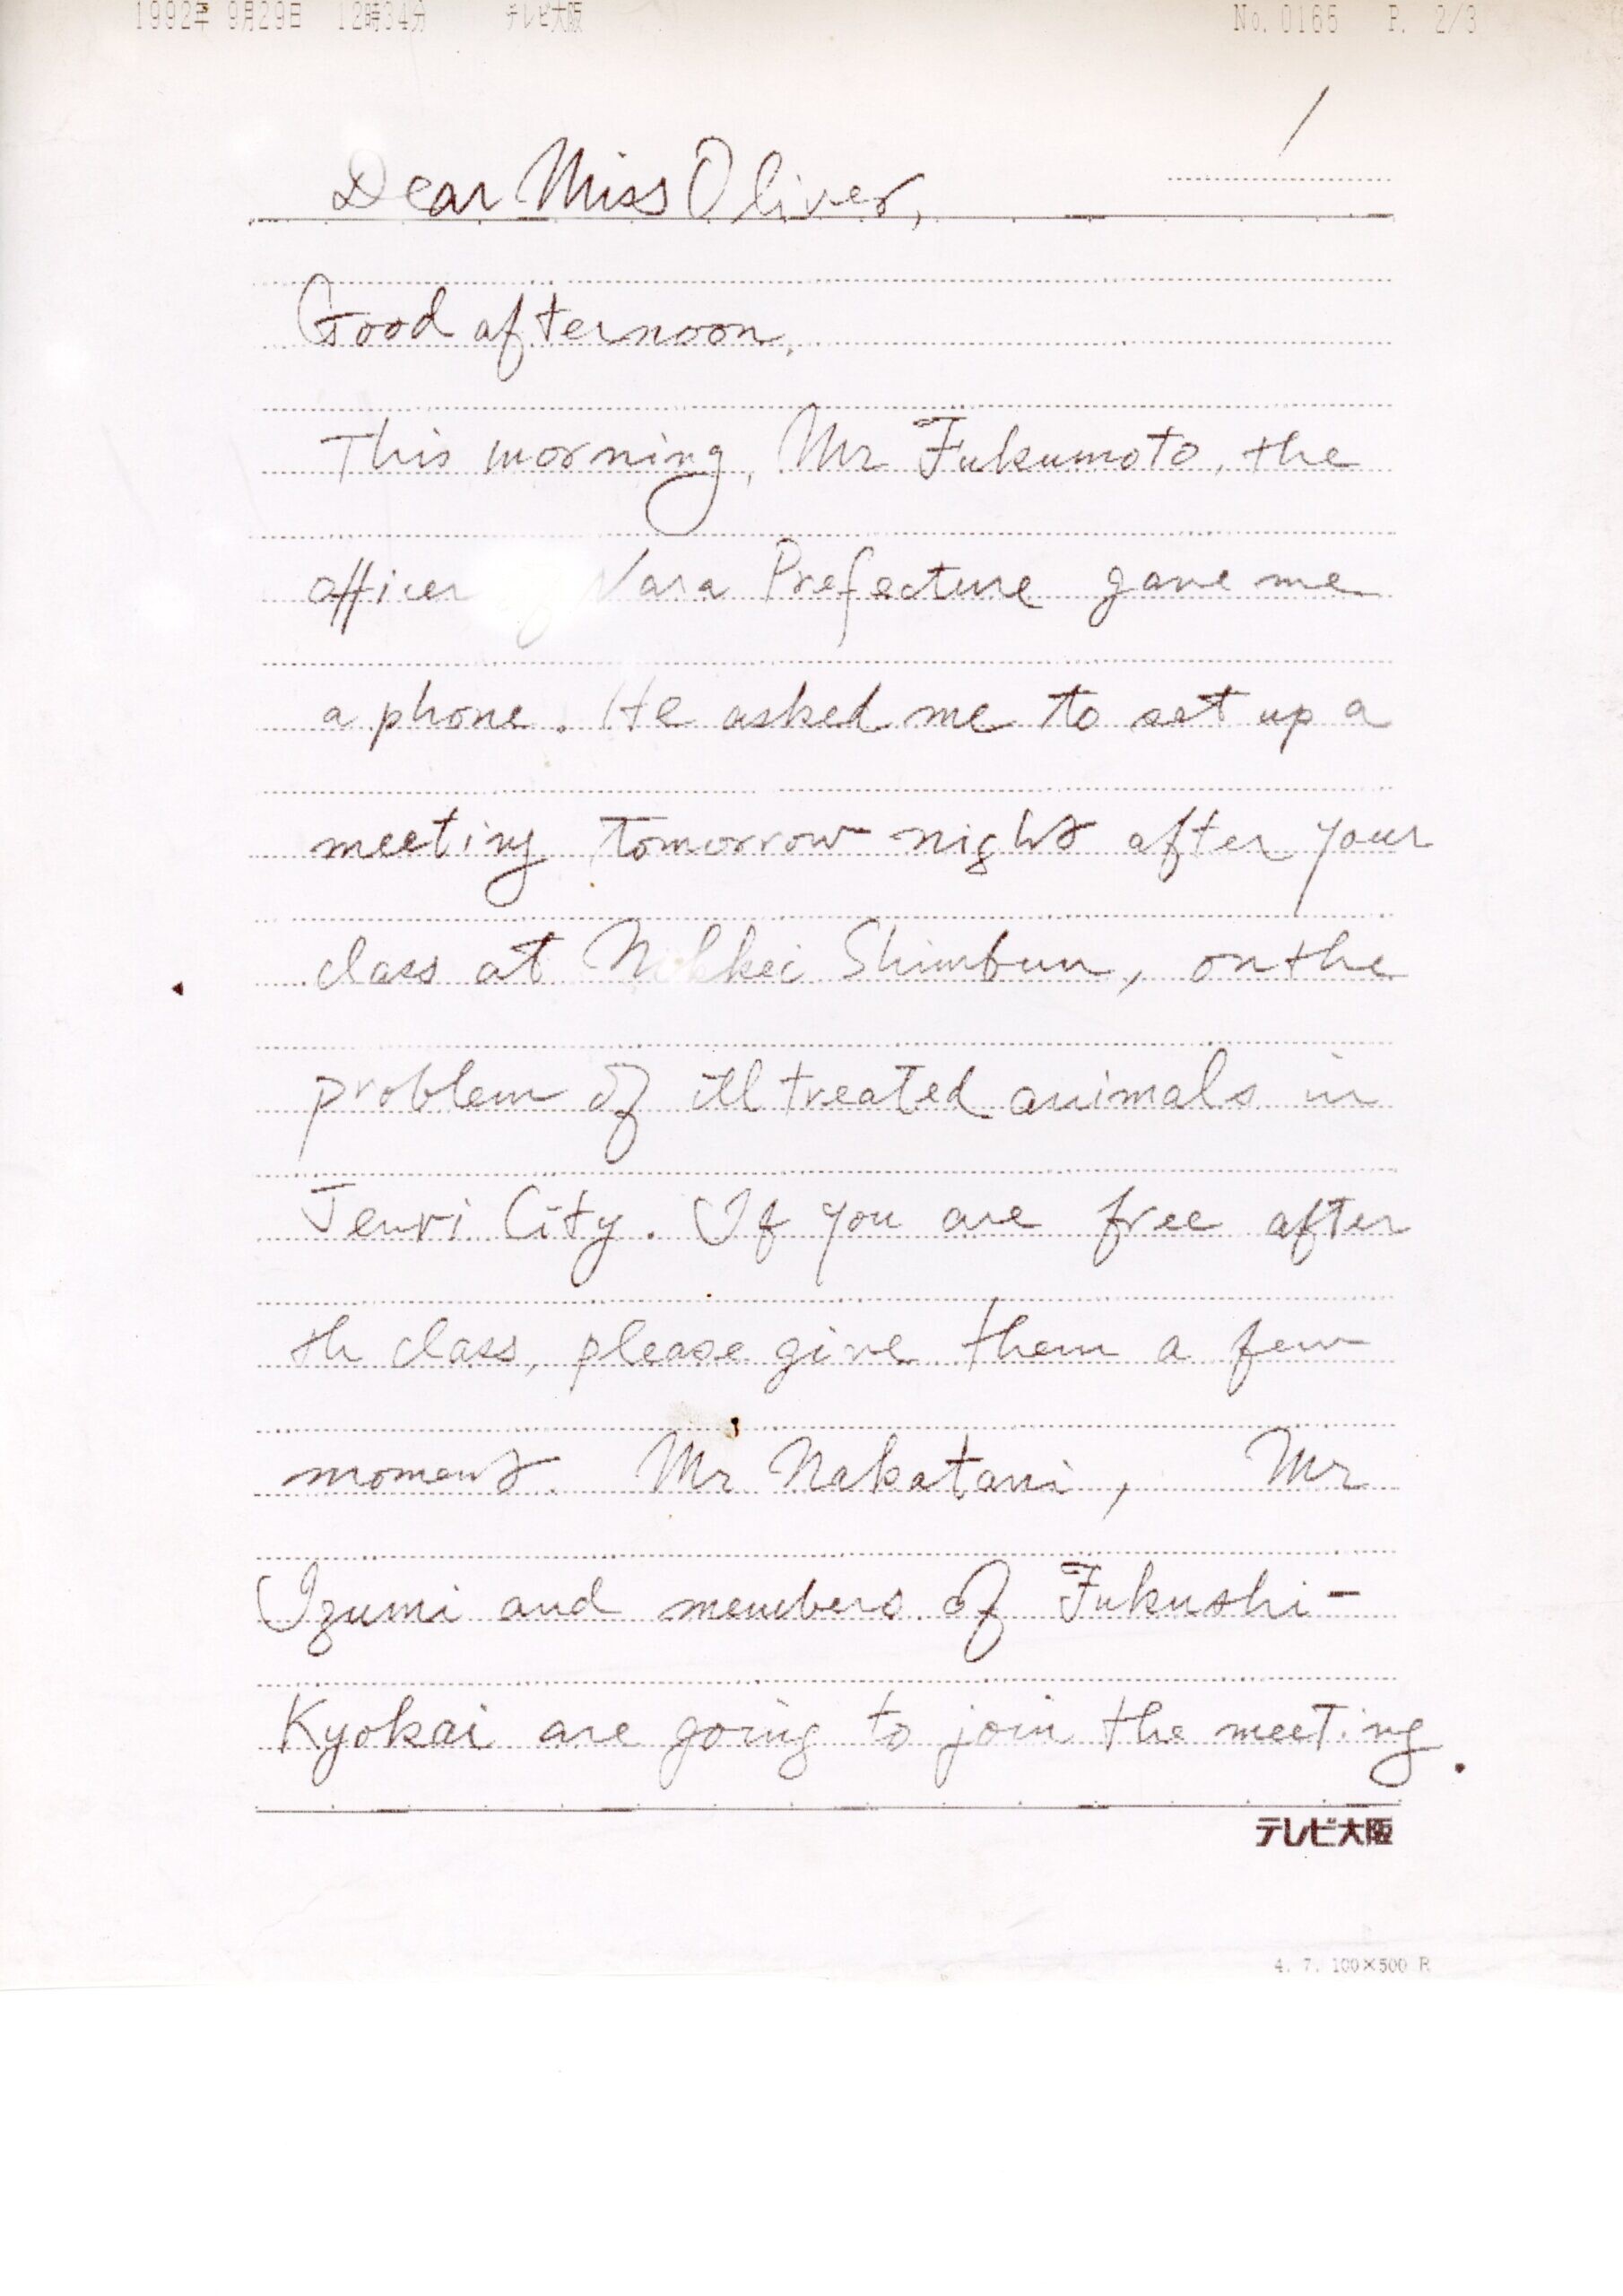 1992年 9月29日 12時34分 テレビ大阪 No. 0165 P. 2/3
1
Dear Miss Oliver,
Good afternoon.
This morning, Mr Fukumoto, the
officer of Nara Prefecture gave me
a phone. He asked me to set up a
meeting tomorrow night after your
class at Nikkei Shimbun, on the
problem of ill treated animals in
Tenri City. If you are free after
th class, please give them a few
moment. Mr Nakatani, Mr
Izumi and members of Fukushi-
Kyokai are going to join the meeting.
テレビ大阪
4. 7. 100×500 R